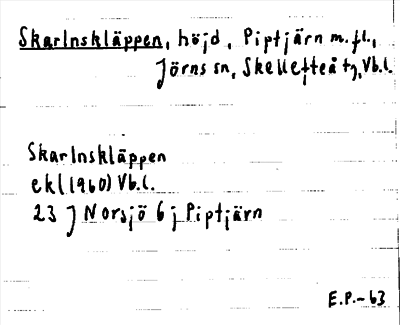 Skarlnskläppen, höjd, Piptjärn m.fl.,
Jörns sn, Skellefteå tg, Vb.l.
Skarlnskläppen
ekl(1960) Vb.l.
23 J Norsjö 6 j Piptjärn
E.P.-63